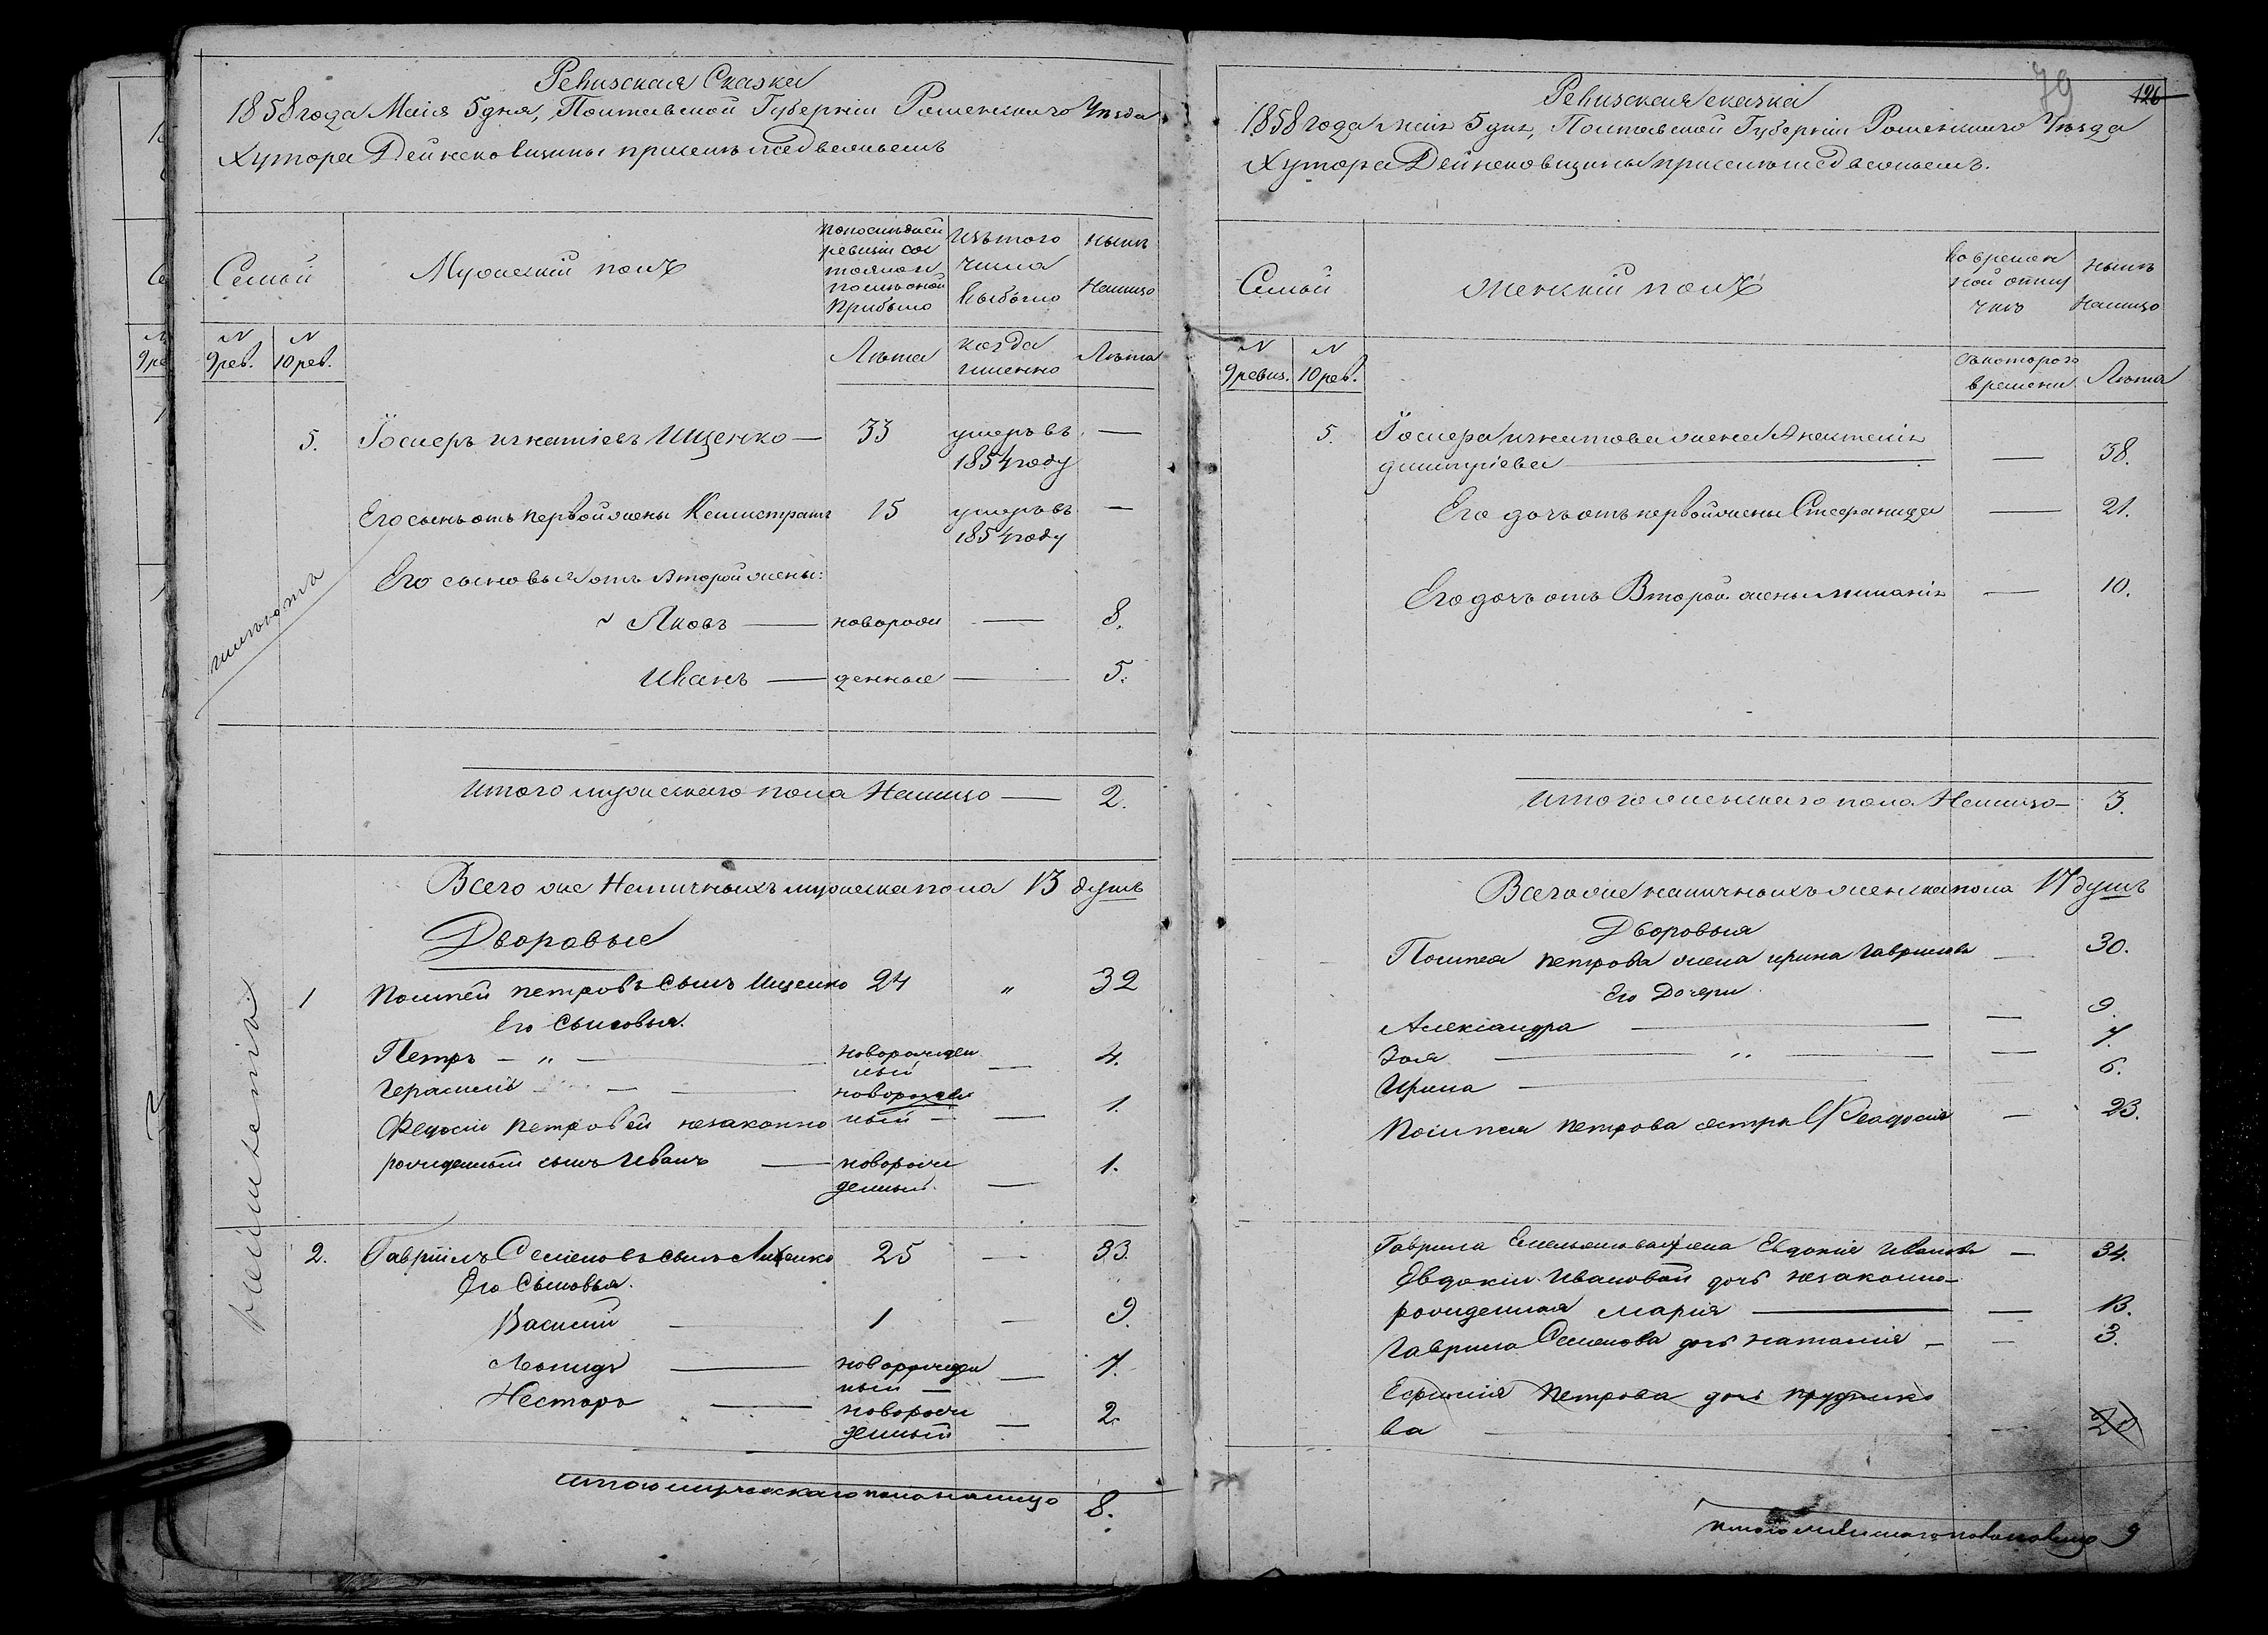 Ревизская Сказка
1858 года Маія 5 дня, Полтавской Губерніи Роменскаго Уезда
Хутора Дейнековщины
Семьи
Мужескій полъ
по последней ревизіи состояло и после оной прибыло
Изътого числа выбыло
ныне Налицо
N 9 рев.
N 10 рев.
Лета
когда именно
Лета
5. Іосифъ игнатіевъ Ищенко — 33 умеръ въ 1854 году —
Его сынъ отъ первой жены Калистратъ 15 умеръ въ 1854 году —
Его сыновья отъ второй жены:
Яковъ — новорож — 8.
Иванъ — денные — 5.
Итого мужескаго пола Налицо — 2.
Всего же Наличныхъ мужеска пола 13 душъ
Дворовые
1 Помпей петровъ сынъ Ищенко 24 " 32
Его Сыновья.
Петръ — " — новорожден ный — 4.
Герасимъ — новорожден ный — 1.
Федосіи Петровой незаконно
рожденный сынъ Иванъ — новорож денный — 1.
2. Гавріилъ Семеновъ сынъ 25 — 33.
Его Сыновья.
Василий — 1 — 9.
Леонидъ — новорожден ный — 7.
Несторъ — новорож денный — 2.
Итого мужескаго пола налицо 8.
79
126
Ревизская сказка
1858 года маія 5 дня, Полтавской Губерніи Роменскаго Уезда
Хутора Дейнековщины
Семьи
Женскій полъ
Во временной отлучке
ныне Налицо
N 9 ревиз.
N 10 рев.
Съ котораго времени
Лета
5. Іосифа игнатова жена Анастасія
димитріева — 38.
Его дочь отъ первой жены Стефанида — 21.
Его дочь отъ Второй жены — 10.
Итого женскаго пола Налицо — 3.
Всего же наличныхъ женска пола 17 душъ
Дворовыя
Помпея петрова жена ирина Гаврилова — 30.
Его Дочери
Александра — 9.
Зоя — " — 7.
Ирина — 6.
Помпея петрова сестра Феодосія — 23.
Гаврила жена Евдокія Иванова — 34.
Евдокіи Ивановой дочь незаконно-
рожденная Марія — 13.
Гаврила Семенова дочь наталія — 3.
Ефимія Петрова дочь
ва — 20
9